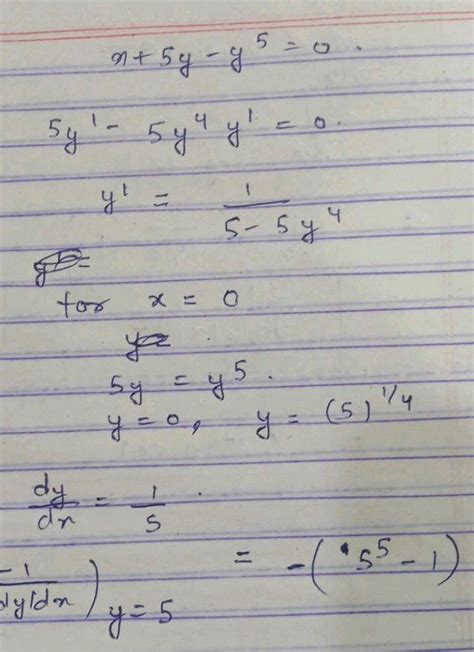 x + 5y - y^5 = 0.
5y' - 5y^4 y' = 0.
y' = 1/(5 - 5y^4)
for x = 0
5y = y^5.
y = 0, y = (5)^1/4
dy/dx = 1/5.
-1/(dy/dx))y=5 = -(5^5 - 1)